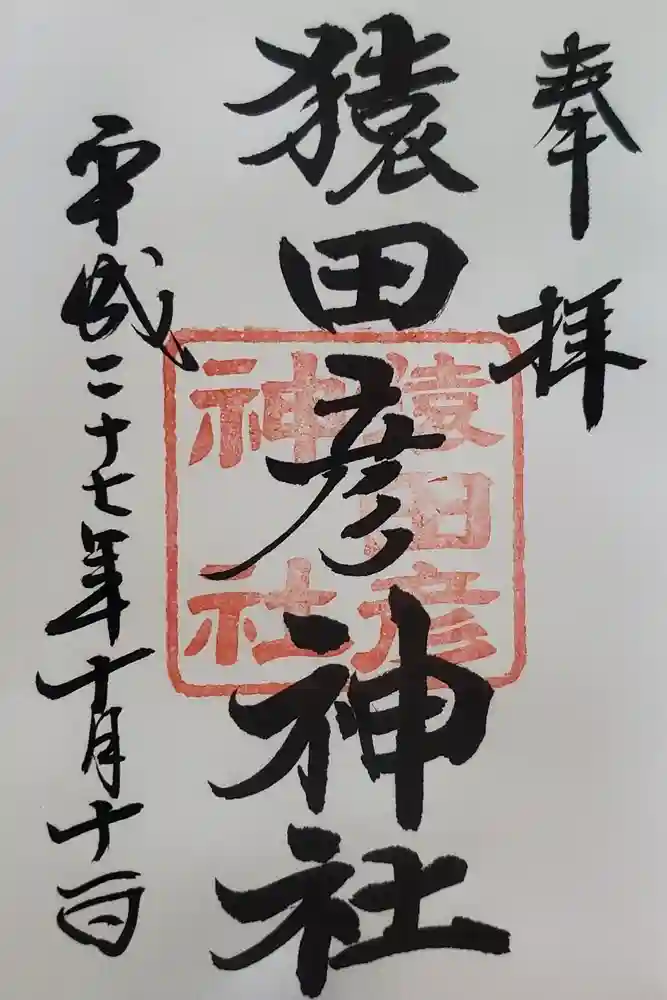 奉拝
猿田彦神社
平成二十七年十月十一日
猿田彦
神社